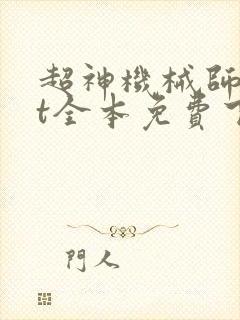 超神機械師
t全本免費
門人